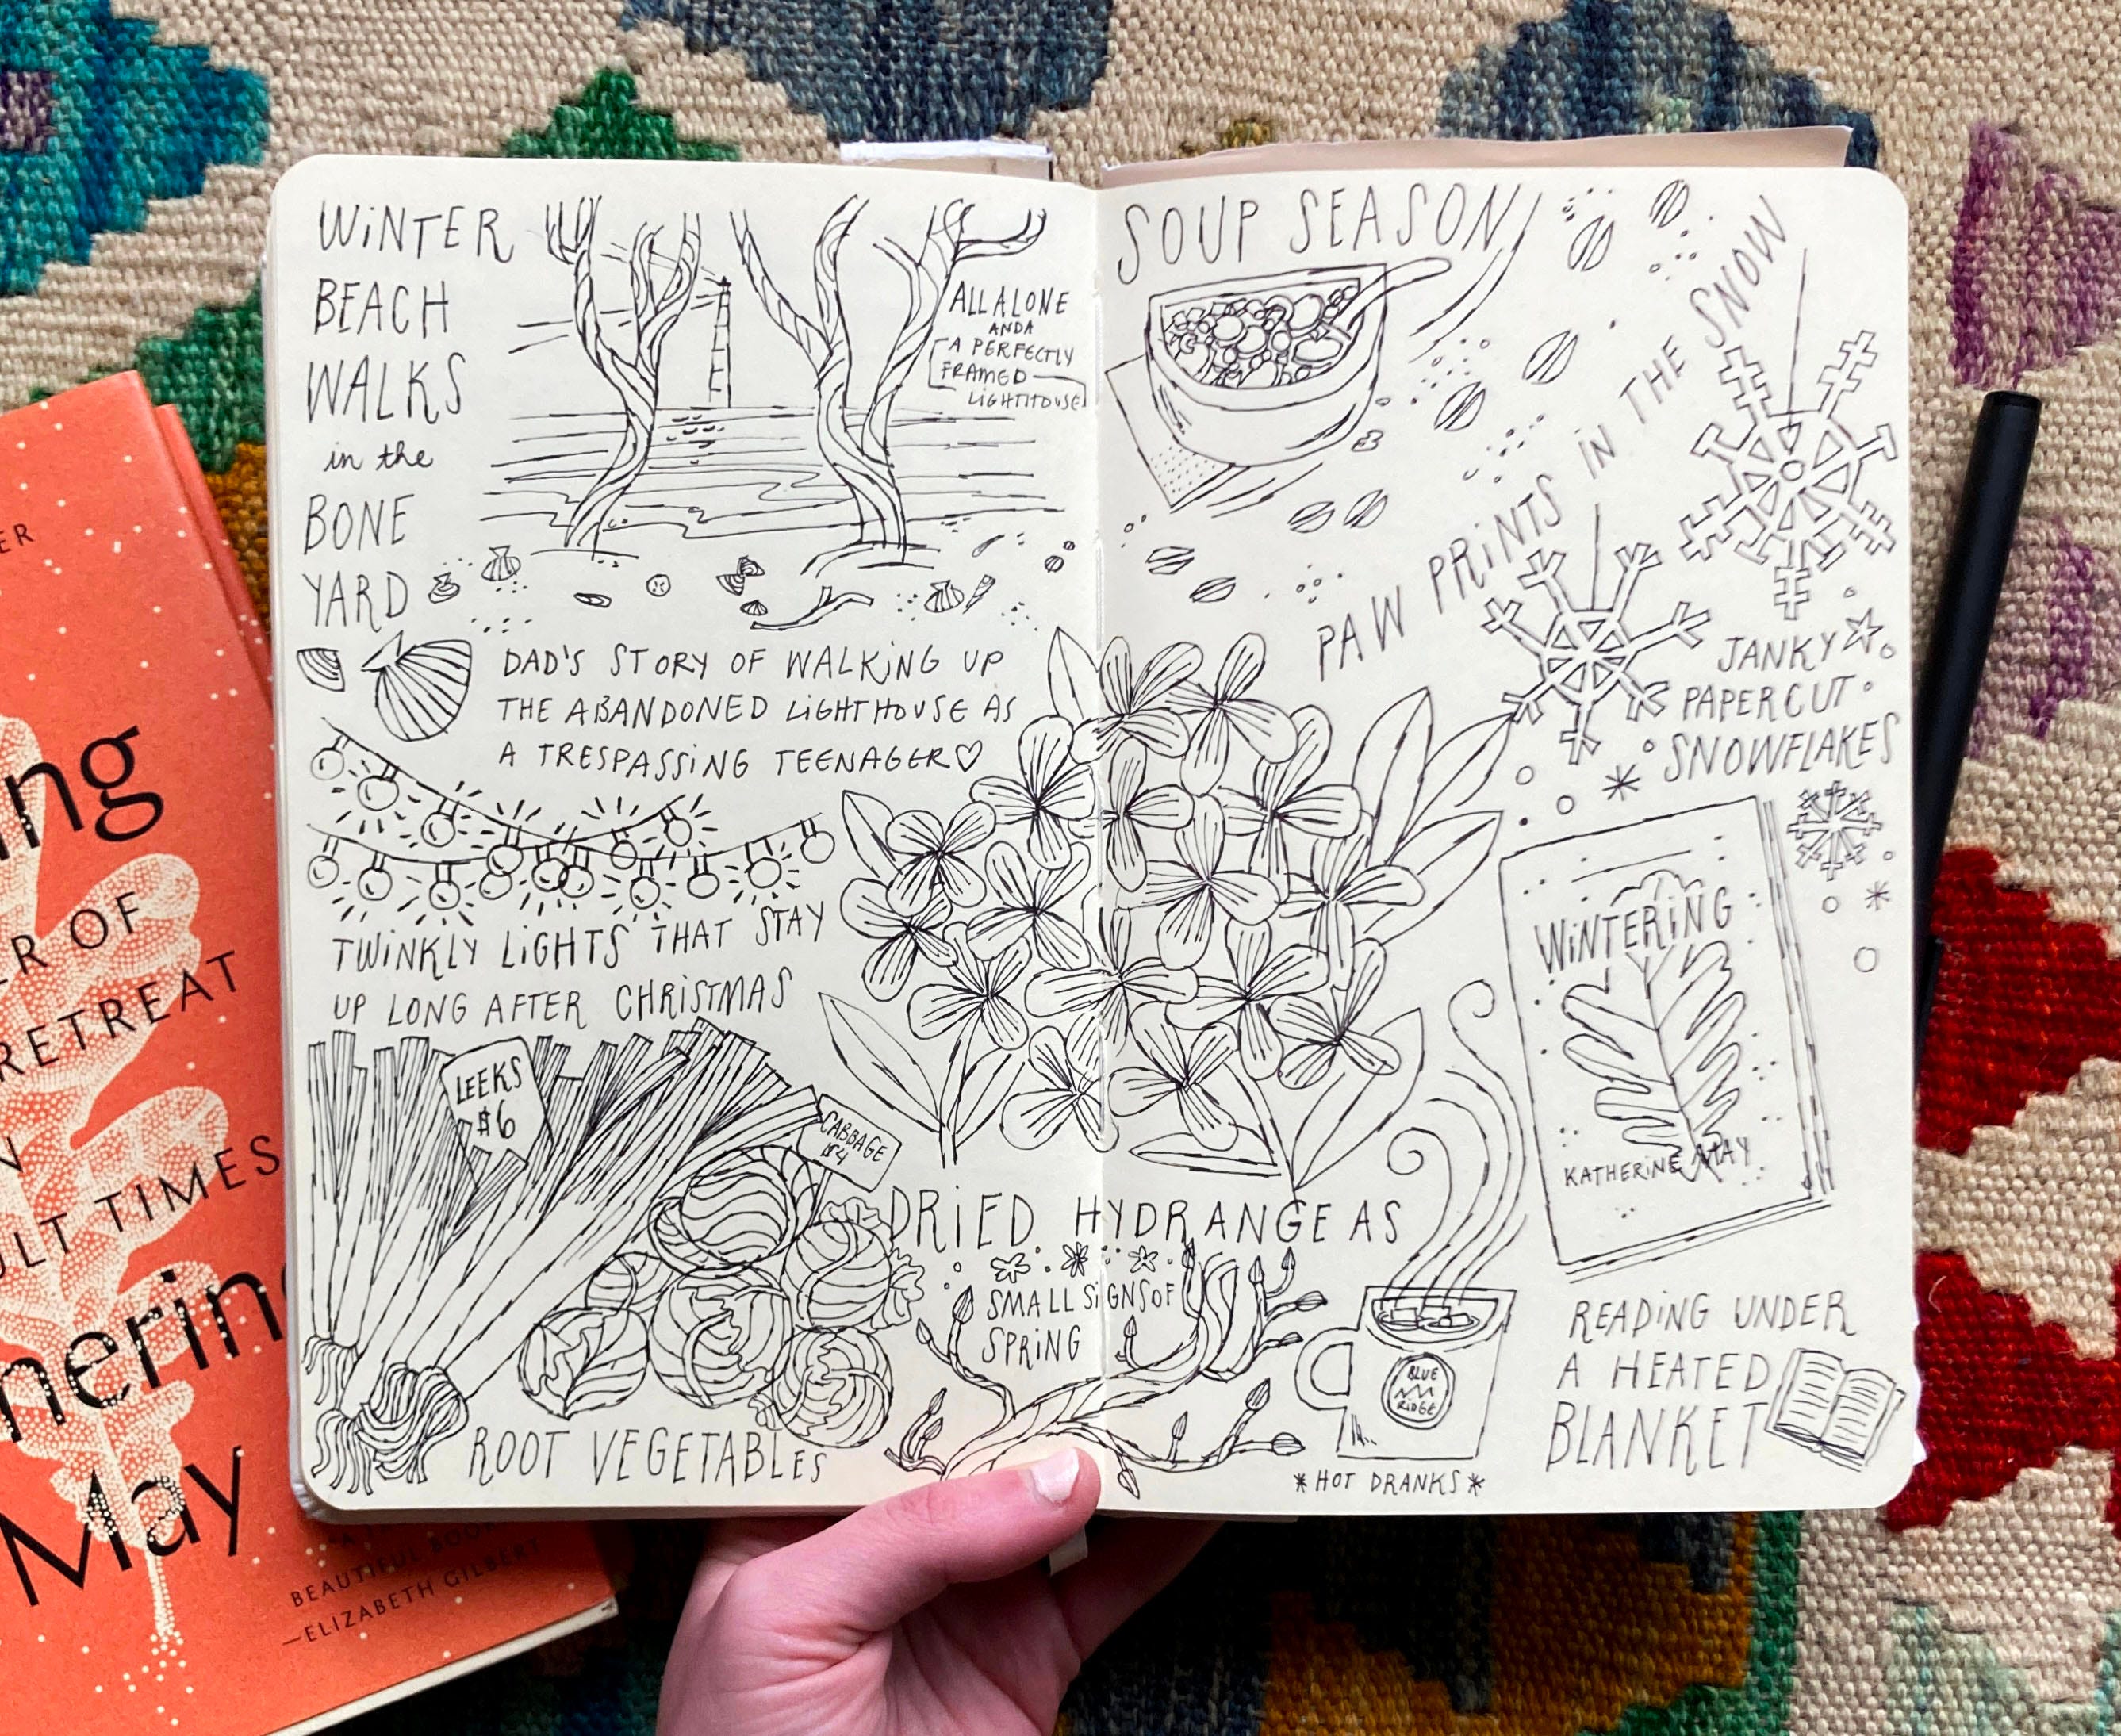 WINTER
BEACH
WALKS
in the
BONE
YARD
ALL ALONE
AND A
A PERFECTLY
FRAMED
LIGHTHOUSE
DAD'S STORY OF WALKING UP
THE ABANDONED LIGHTHOUSE AS
A TRESPASSING TEENAGER♡
TWINKLY LIGHTS THAT STAY
UP LONG AFTER CHRISTMAS
LEEKS
$6
CABBAGE
$4
ROOT VEGETABLES
SOUP SEASON
PAW PRINTS IN THE SNOW
JANKY
PAPER CUT
SNOWFLAKES
DRIED HYDRANGEAS
SMALL SIGNS OF
SPRING
WINTERING
KATHERINE MAY
BLUE
RIDGE
*HOT DRANKS*
READING UNDER
A HEATED
BLANKET
ER
ng
ER OF
RETREAT
N
ULT TIMES
herin
May
BEAUTIFUL BOOK
—ELIZABETH GILBERT